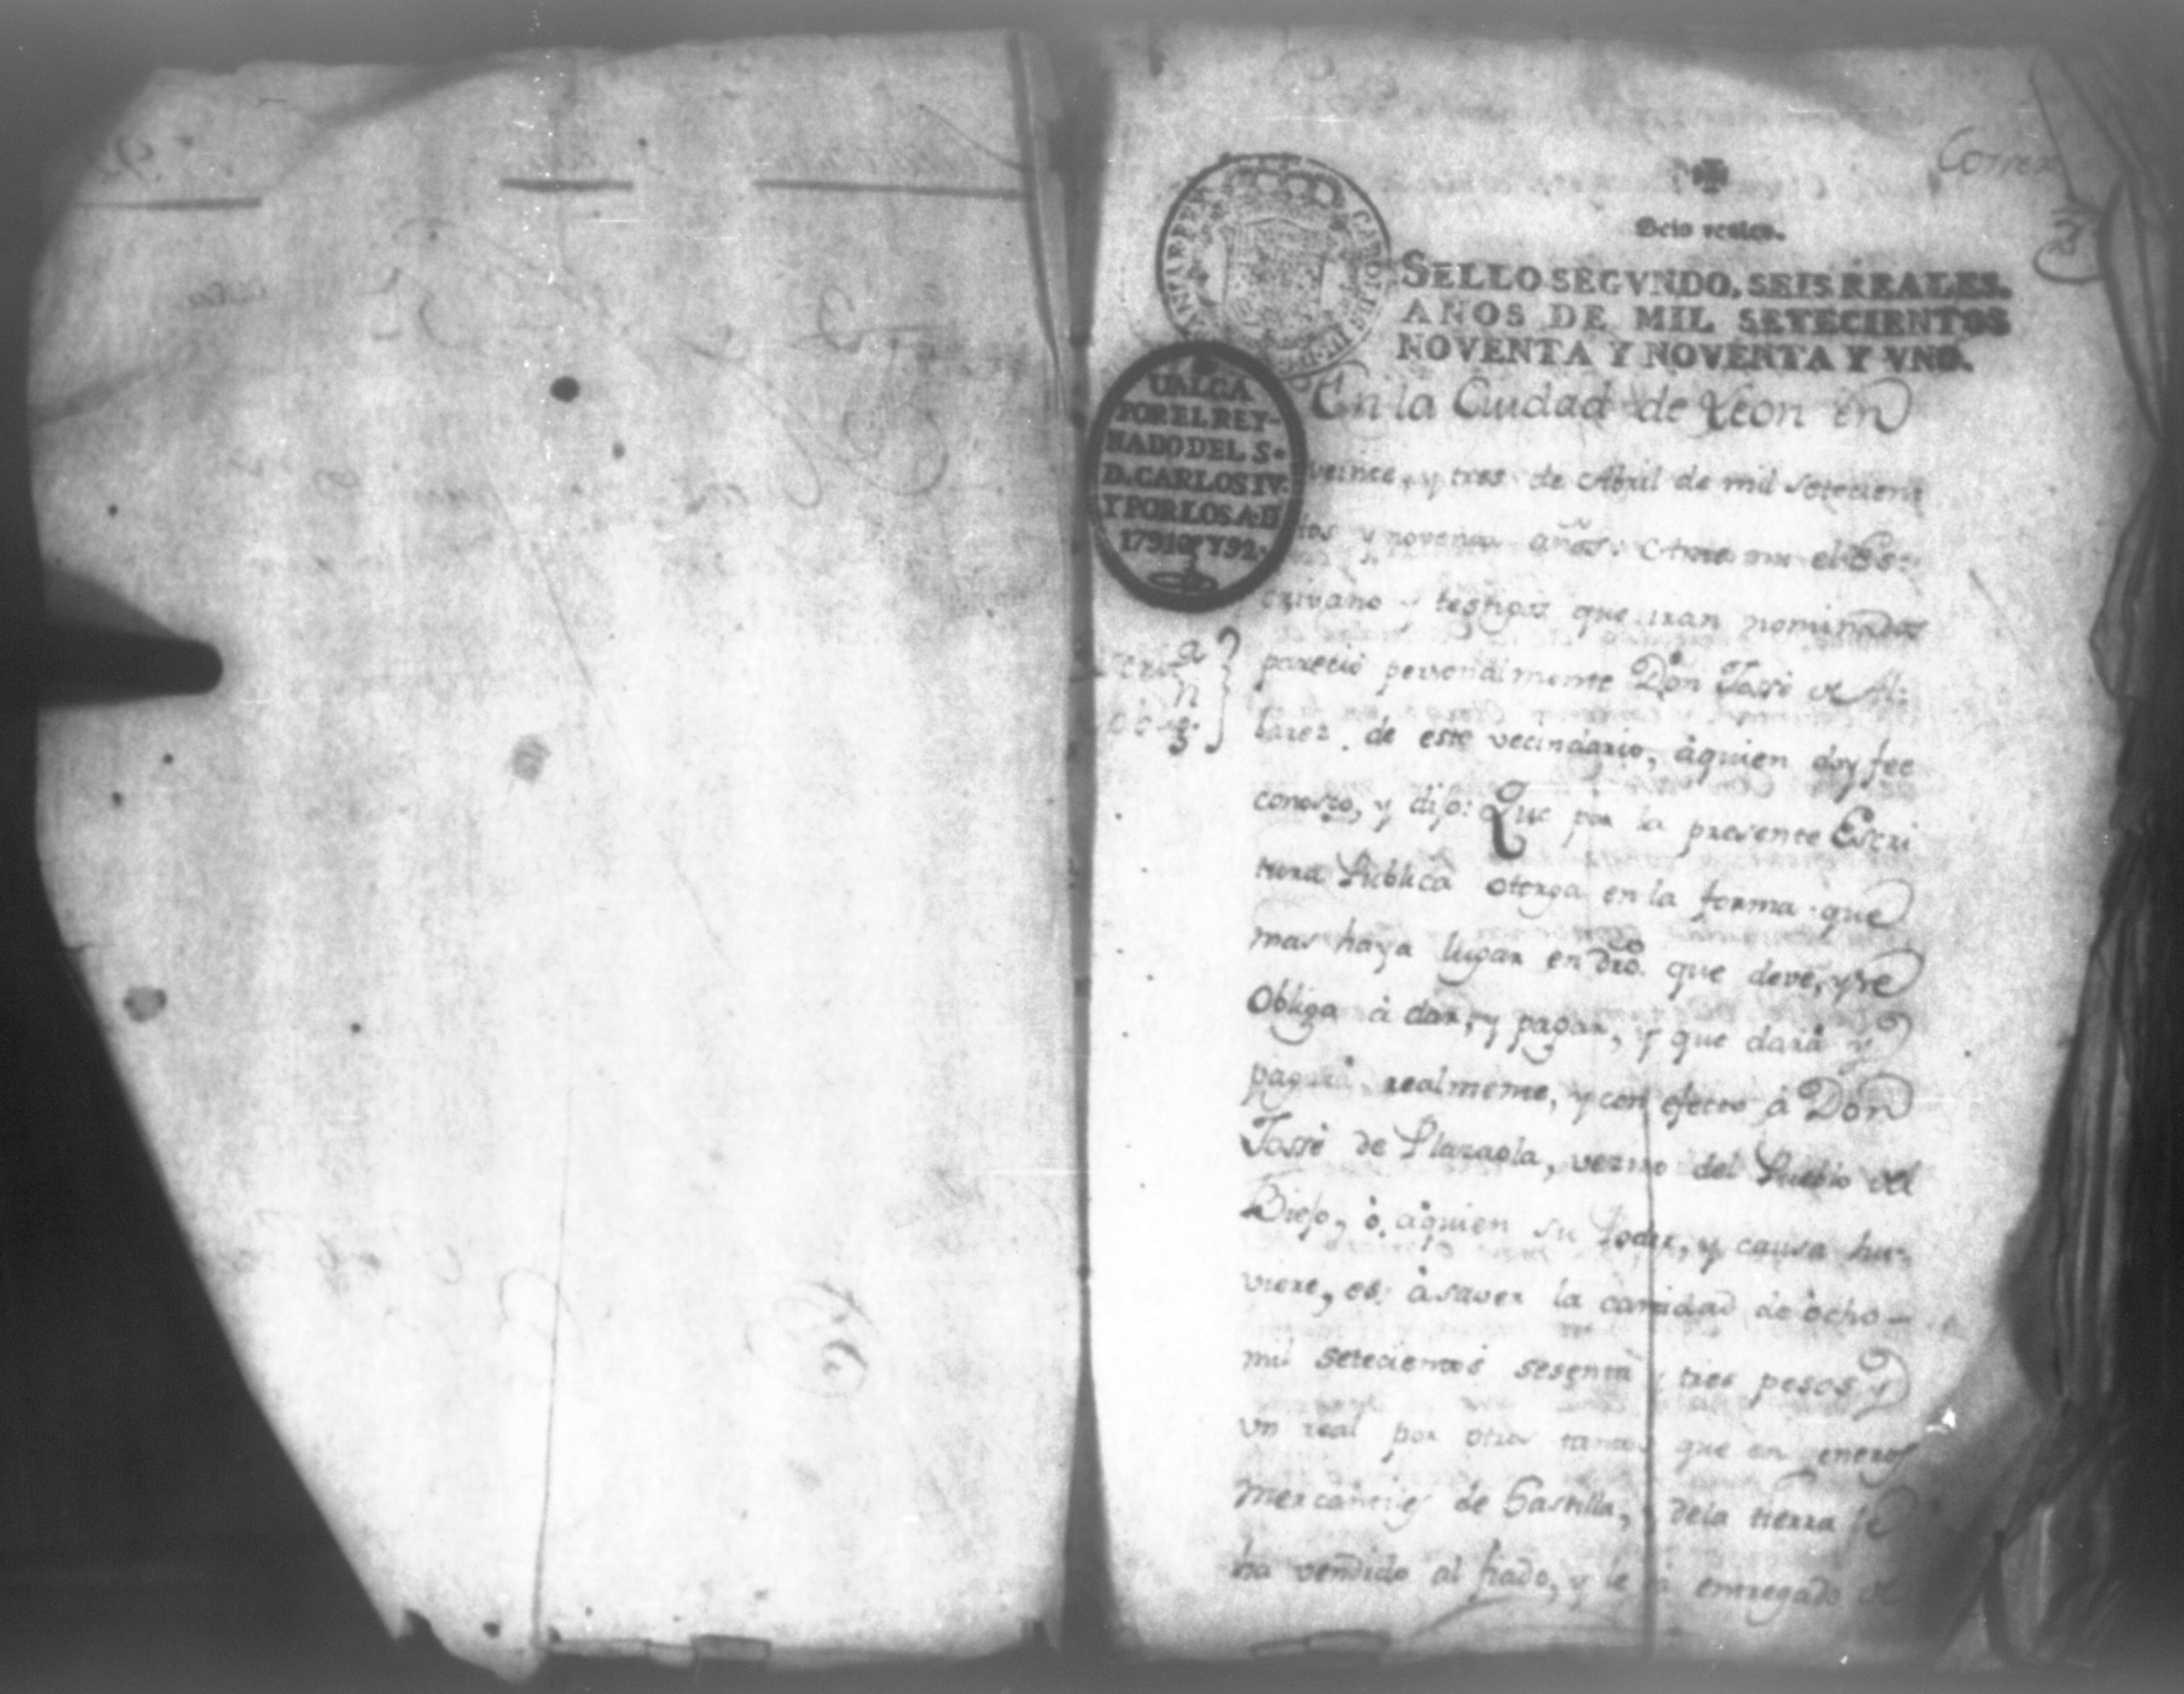 Correx
Seis reales.
SELLO SEGVNDO, SEIS REALES,
AÑOS DE MIL SETECIENTOS
NOVENTA Y NOVENTA Y VNO.
UALGA
POR EL REY-
NADO DEL S.
D. CARLOS IV.
Y POR LOS A.
1791 Y 92.
En la Ciudad de Leon en
veinte, y tres de Abril de mil setecien
tos y noventa años: Ante mi el Es-
crivano y testigos que iran nominados
parecio personalmente Don Jossè de Al-
barez de este vecindario, àquien doy fee
conosco, y dijo: Que por la presente Escri
tura Publica otorga en la forma que
mas haya lugar en dro. que deve, y se
Obliga à dar, y pagar, y que darà y
pagarà realmente, y con efecto à Don
Jossè de Plazaola, vezino del Pueblo del
Biejo, ò àquien su Poder, y causa hu-
viere, es àsaver la cantidad de ocho
mil setecientos sesenta y tres pesos y
un real por otros tantos que en generos
mercantiles de Castilla, y dela tierra se
ha vendido al fiado, y le à entregado de